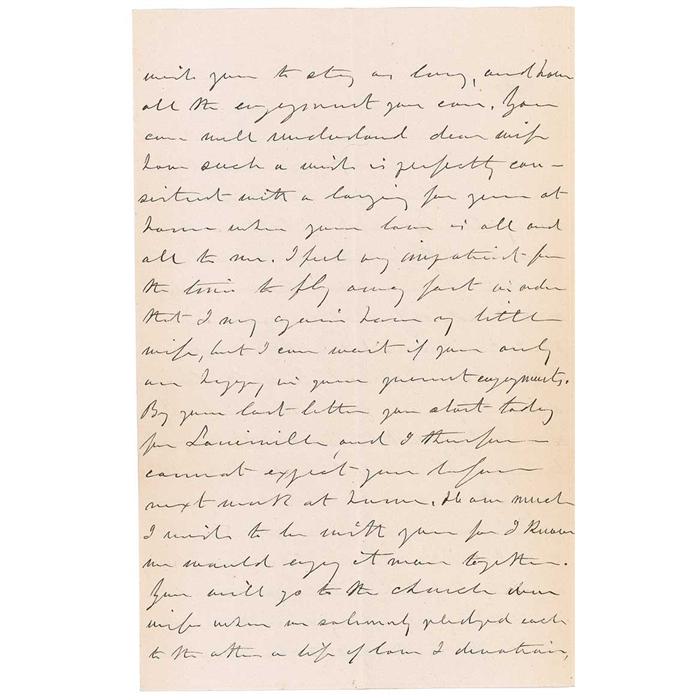 wish you to stay as long, and have
all the enjoyment you can. You
can well understand dear wife
how such a wish is perfectly con-
sistent with a longing for you at
home when your love is all and
all to me. I feel very impatient for
the time to fly away fast in order
that I may again have my little
wife, but I can wait if you only
are happy in your present enjoyments.
By your last letter you start today
for Louisville, and I therefore
cannot expect you before
next week at home. How much
I wish to be with you for I know
we would enjoy it more together.
You will go to the church dear
wife when we solemnly pledged each
to the other a life of love & devotion,